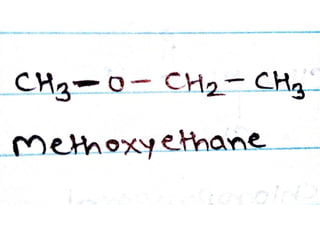 CH₃-O-CH₂-CH₃
Methoxyethane